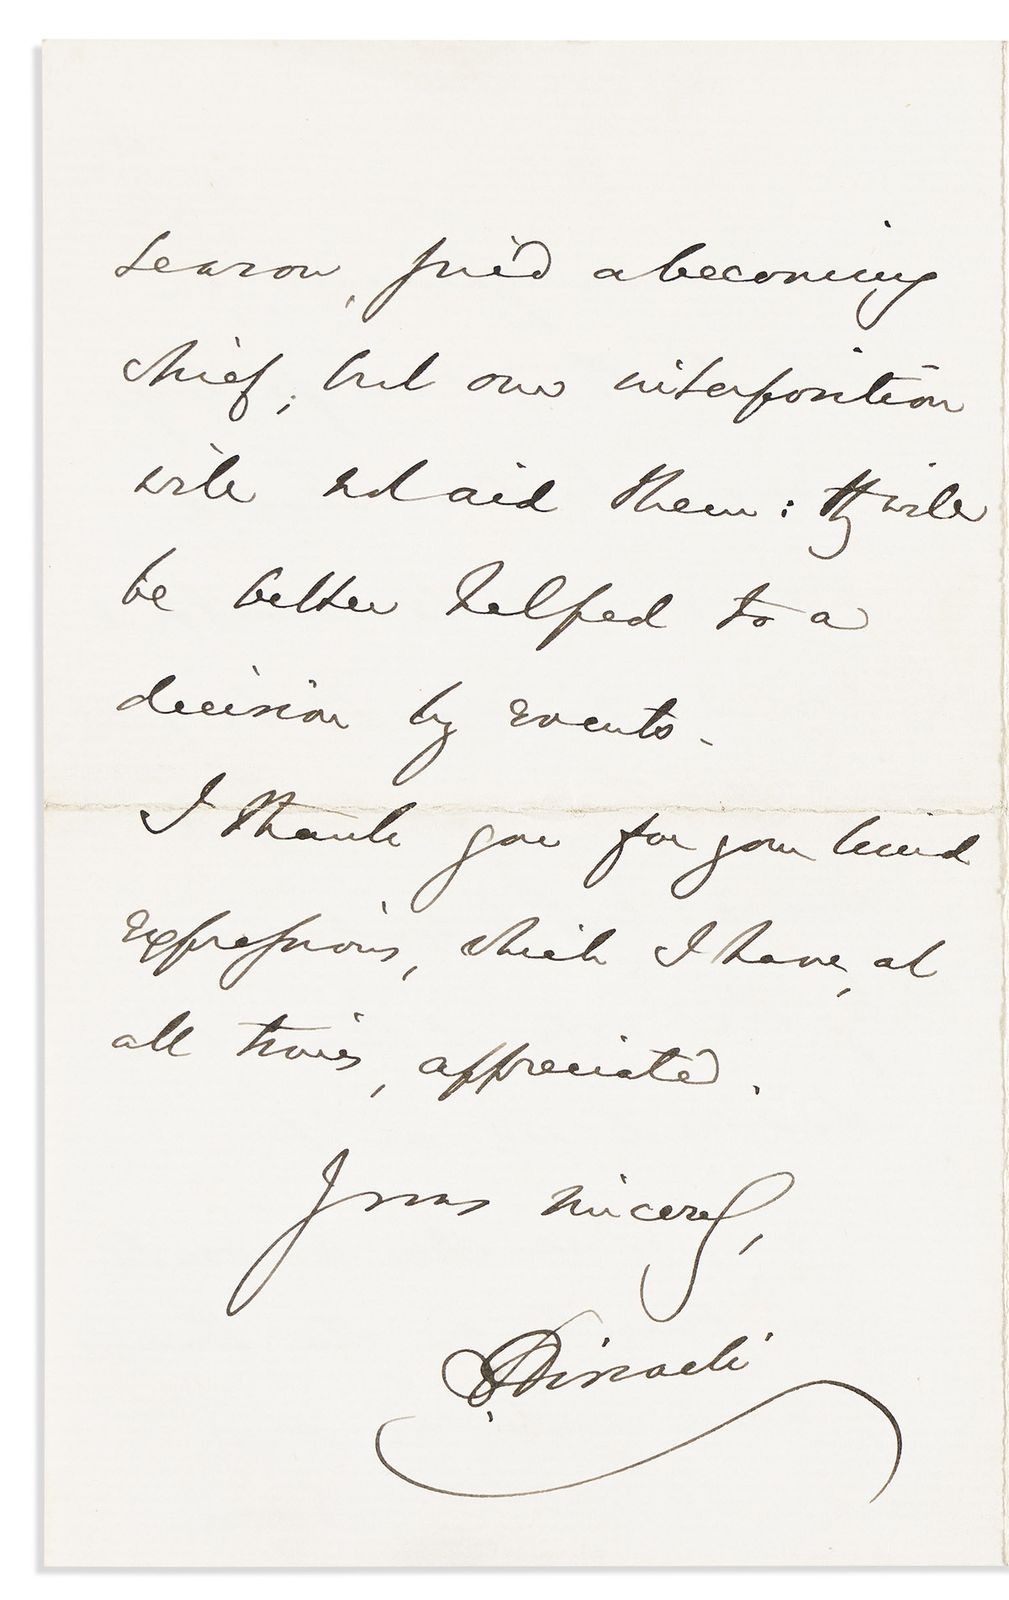 season, find a becoming
chief; but our interposition
will not aid them: they will
be better helped to a
decision by events.
I thank you for your kind
expressions, which I have, at
all times, appreciated.
Yours sincerely,
B. Disraeli